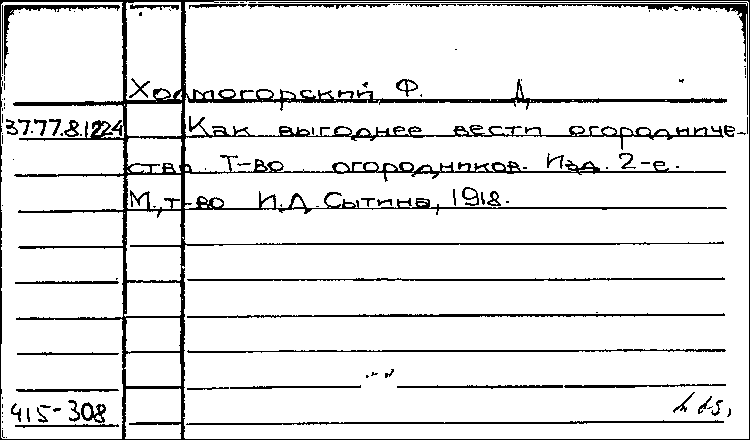 Холмогорский, Ф. Д.
37.77.8.1224 Как выгоднее вести огородниче-
ства. Т-во огородников. Изд. 2-е.
М., т-во И.Д. Сытина, 1918.
415-308